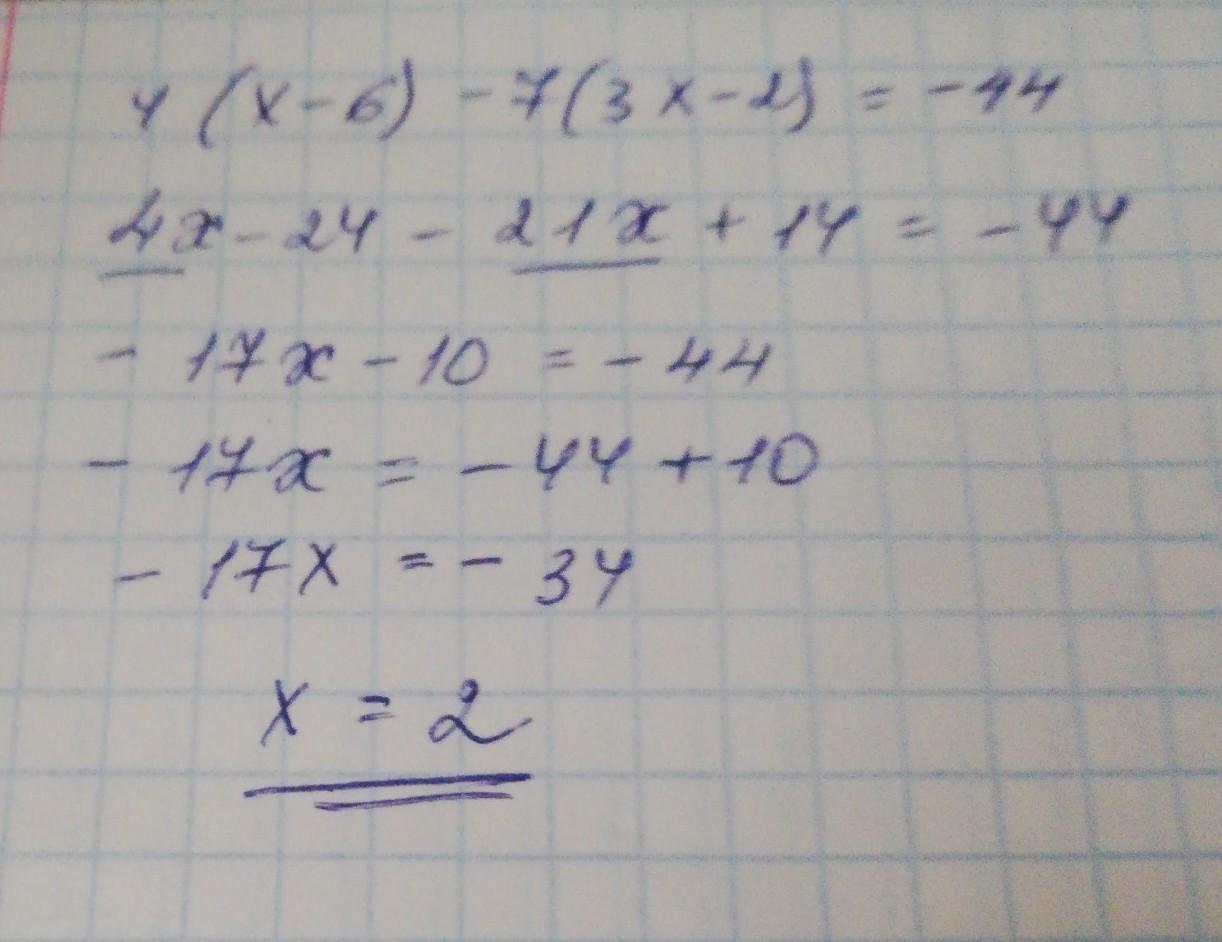 4 (x - 6) - 7(3x - 2) = -44
4x - 24 - 21x + 14 = -44
- 17x - 10 = - 44
- 17x = - 44 + 10
- 17x = - 34
x = 2